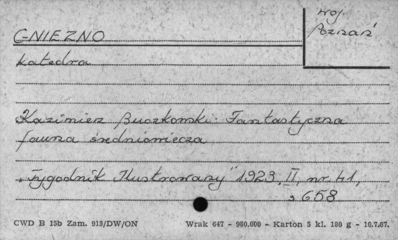 woj.
Poznań
GNIEZNO
Katedra
Kazimierz Buczkowski: Fantastyczna
fauna średniowiecza
„Tygodnik Ilustrowany" 1923, II, nr 41,
s 658
CWD B 15b Zam. 913/DW/ON Wrak 647 - 980.600 - Karton 5 kl. 180 g - 10.7.67.